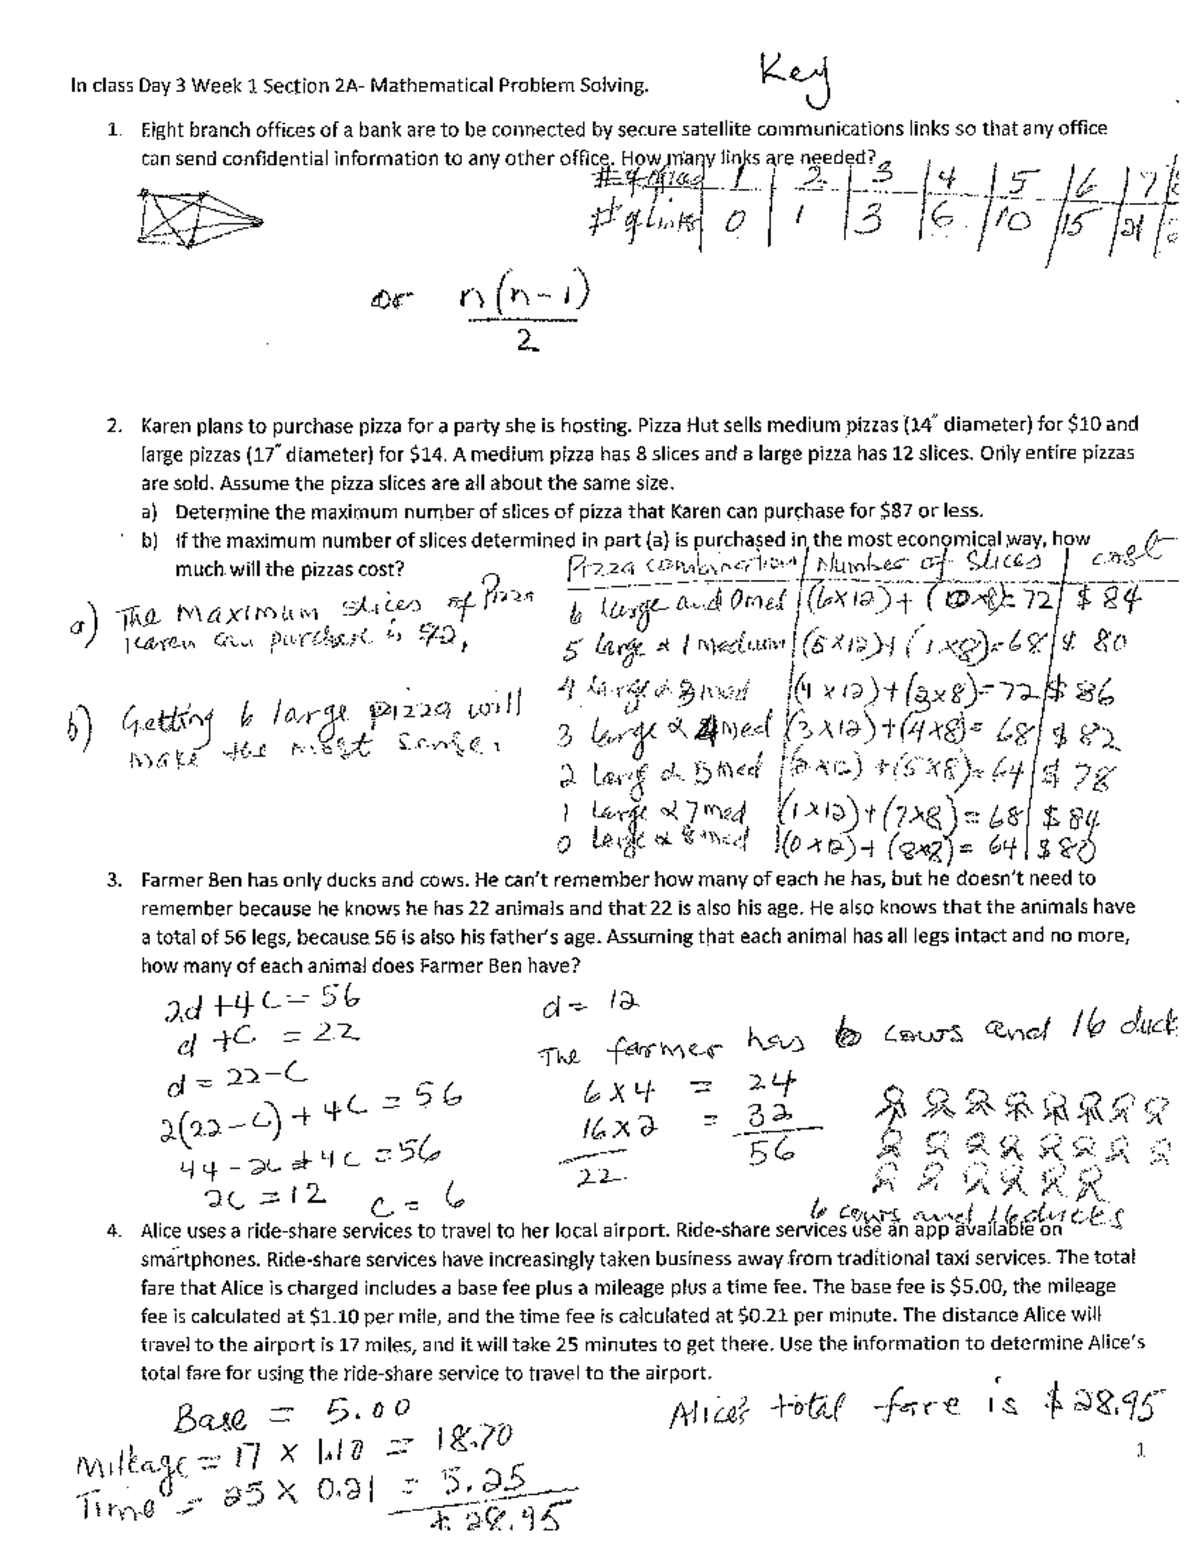 Key
In class Day 3 Week 1 Section 2A- Mathematical Problem Solving.
1. Eight branch offices of a bank are to be connected by secure satellite communications links so that any office
can send confidential information to any other office. How many links are needed?
# of offices 1 2 3 4 5 6 7
# of links 0 1 3 6 10 15 21
or n(n-1)
2
2. Karen plans to purchase pizza for a party she is hosting. Pizza Hut sells medium pizzas (14″ diameter) for $10 and
large pizzas (17″ diameter) for $14. A medium pizza has 8 slices and a large pizza has 12 slices. Only entire pizzas
are sold. Assume the pizza slices are all about the same size.
a) Determine the maximum number of slices of pizza that Karen can purchase for $87 or less.
b) If the maximum number of slices determined in part (a) is purchased in the most economical way, how
much will the pizzas cost?
Pizza combination Number of Slices cost
6 large and 0 med (6x12)+(0x8)=72 $84
5 large & 1 medium (5x12)+(1x8)=68 $ 80
4 large & 3 med (4x12)+(3x8)=72 $86
3 large & 4 med (3x12)+(4x8)=68 $82
2 larg & 5 med +(5x8)=64 $78
1 large & 7 med (1x12)+(7x8)=68 $84
0 large & 8 med (0x12)+(8x8)=64 $80
a) The maximum slices of Pizza
Karen can purchase is 72,
b) Getting 6 large pizza will
make the most sense.
3. Farmer Ben has only ducks and cows. He can't remember how many of each he has, but he doesn't need to
remember because he knows he has 22 animals and that 22 is also his age. He also knows that the animals have
a total of 56 legs, because 56 is also his father's age. Assuming that each animal has all legs intact and no more,
how many of each animal does Farmer Ben have?
2d+4c=56
d+c=22
d=22-c
2(22-c)+4c=56
44-2c+4c=56
2c=12 c=6
d=12
The farmer has 6 cows and 16 duck
6x4 = 24
16x2 = 32
22 56
6 cows and 16 ducks
4. Alice uses a ride-share services to travel to her local airport. Ride-share services use an app available on
smartphones. Ride-share services have increasingly taken business away from traditional taxi services. The total
fare that Alice is charged includes a base fee plus a mileage plus a time fee. The base fee is $5.00, the mileage
fee is calculated at $1.10 per mile, and the time fee is calculated at $0.21 per minute. The distance Alice will
travel to the airport is 17 miles, and it will take 25 minutes to get there. Use the information to determine Alice's
total fare for using the ride-share service to travel to the airport.
Base = 5.00
Mileage = 17 x 1.10 = 18.70
Time = 25 x 0.21 = 5.25
28.95
Alice's total fare is $28.95
1